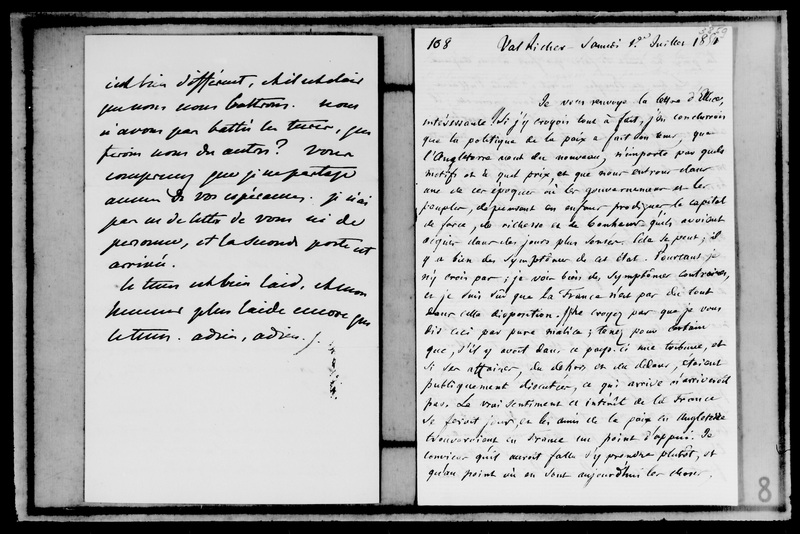 est bien différent, et il est clair
que nous nous battrons. nous
n'avons pas battu les turcs, que
ferons nous des autres? vous
comprenez que je ne partage
aucune de vos espérances. je n'ai
pas eu de lettre de vous ni de
personne, et la seconde poste est
arrivée.
le tems est bien laid, et mon
humeur plus laide encore que
le tems. adieu, adieu.
108 Val Richer Samedi 1er Juillet 18
Je vous renvoye la lettre d'Ellice,
intéressante. Si j'y croyois tout à fait, j'en conclurois
que la politique de la paix a fait son tems, que
l'Angleterre veut du nouveau, n'importe par quels
motifs et à quel prix et que nous entrons dans
une de ces époques où les gouvernemens et les
peuples, dépensent en un jour prodigue le capital
de force, de richesse et de bonheur qu'ils avoient
acquis dans des jours plus sensés. Cela se peut; il
y a bien des symptômes de cet état. Pourtant je
n'y crois pas; je vois bien des symptômes contraires,
et je suis sûr que la France n'est pas du tout
dans cette disposition. Ne croyez pas que je vous
dis ceci par pure malice; tenez pour certain
que, s'il y avoit dans ce pays-ci une tribune, et
si ses affaires, du dehors et du dedans, étoient
publiquement discutées, ce qui arrive n'arriveroit
pas. Le vrai sentiment et intérêt de la France
se feroit jour, et les amis de la paix en Angleterre
trouveroient en France un point d'appui. Je
conviens qu'il auroit fallu s'y prendre plutôt, et
qu'au point où en sont aujourd'hui les choses,
8